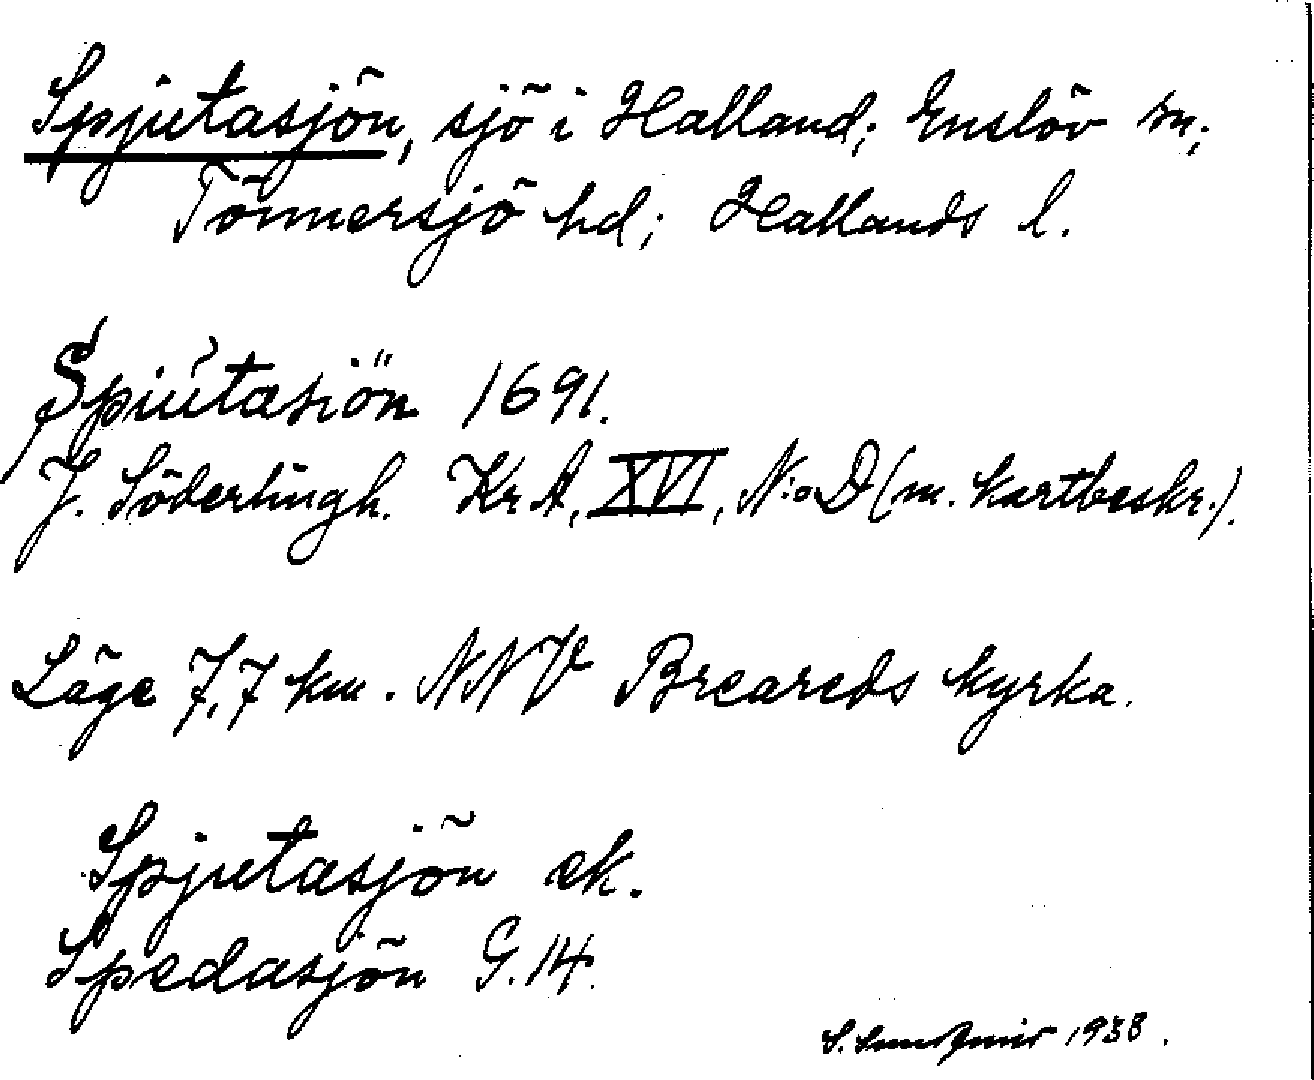 Spjutasjön, sjö i Halland; Enslöv sn;
Tönnersjö hd; Hallands l.
Spiutasiön 1691.
J. Söderlingh. Kr A, XVI, N:o D (m. kartbeskr.).
Läge 7,7 km. NNV Breareds kyrka.
Spjutasjön ek.
Spedasjön G.14.
S. 1938.